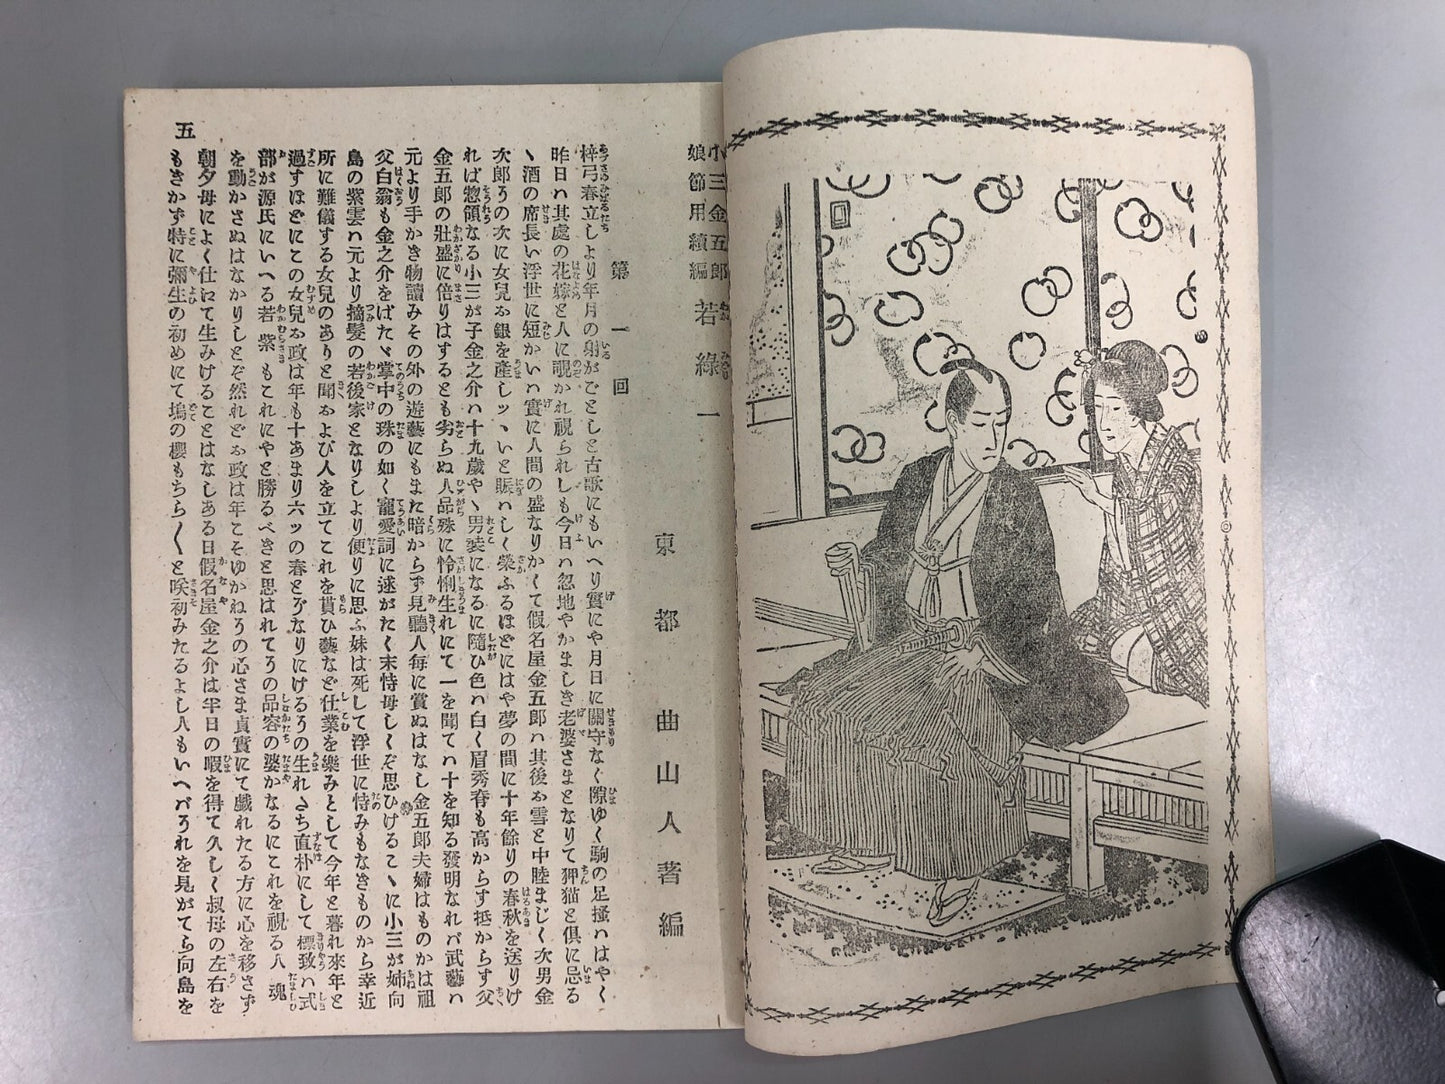 小三金五郎
娘節用續編
若綠一
東都 曲山人著編
第一回
梓弓春立しより年月の射がごとしと古歌にもいへり實にや月日に關守なく隙ゆく駒の足掻ハはやく
昨日ハ其處の花嫁と人に覗かれ視られしも今日ハ忽地やかましき老婆さまとなりて狎猫と倶に忌る
ヽ酒の席長い浮世に短かいハ實に人間の盛なりかくて假名屋金五郎ハ其後お雪と中睦まじく次男金
次郎その次に女兒お銀を產しッヽいと賑ハしく榮ふるほどにはや夢の間に十年餘りの春秋を送りけ
れば惣領なる小三が子金之介ハ十九歲やヽ男裝になるに隨ひ色ハ白く眉秀脊も高からず抵からず父
金五郎の壯盛に倍りはするとも劣らぬ人品殊に怜悧生れにて一を聞てハ十を知る發明なれバ武藝ハ
元より手かき物讀みその外の遊藝にもまた暗からず見聽人每に賞ぬはなし金五郎夫婦はものかは祖
父白翁も金之介をばたヾ掌中の珠の如く寵愛詞に述がたく末恃母しくぞ思ひけるこヽに小三が姉向
島の紫雲ハ元より摘髮の若後家となりしより便りに思ふ妹は死して浮世に恃みもなきものから幸近
所に難儀する女兒のありと聞および人を立てこれを貰ひ藝など仕業を樂みとして今年と暮れ來年と
過すほどにこの女兒お政は年も十あまり六ッの春とぞなりにけるその生れさち直朴にして標致ハ式
部が源氏にいへる若紫もこれにやと勝るべきと思はれてその品容の婆かなるにこれを視る人魂
を動かさぬはなかりしとぞ然れどお政は年こそゆかねその心さま貞實にて戲れたる方に心を移さず
朝夕母によく仕にて生みけることはなしある日假名屋金之介は半日の暇を得て久しく叔母の左右を
もきかず特に彌生の初めにて塢の櫻もちら〱と咲初みたるよし人もいへバそれを見がてら向島を
五